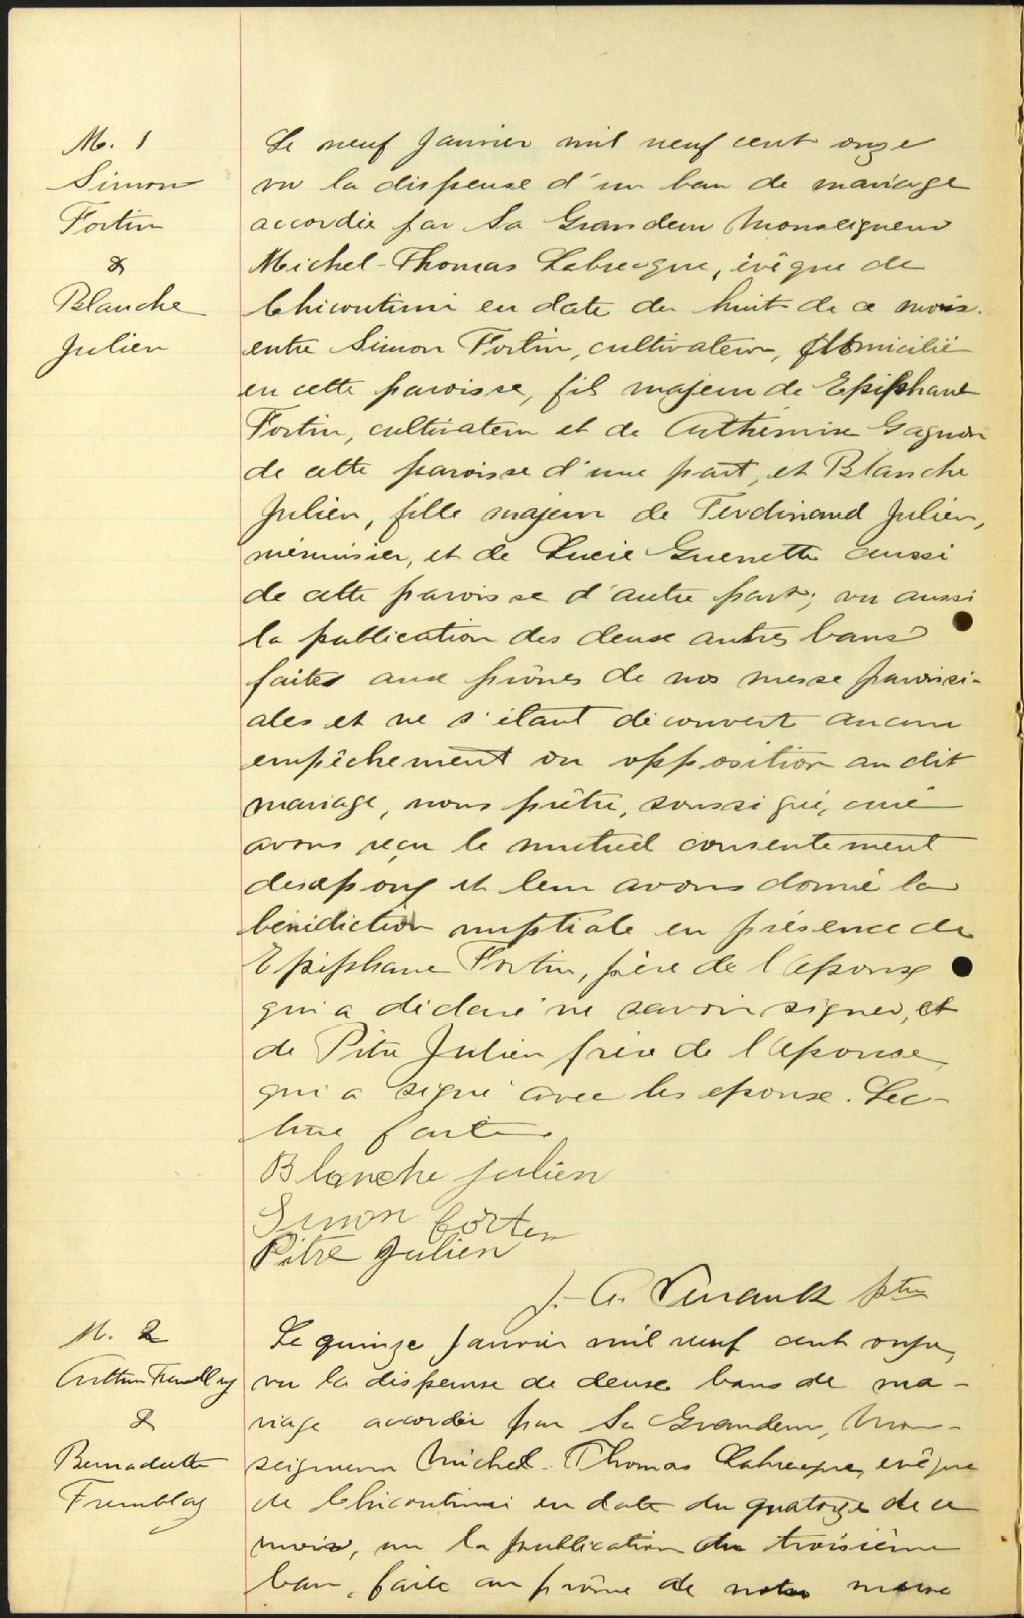 M. 1
Simon
Fortin
&
Blanche
Julien
Le neuf Janvier mil neuf cent onze
vu la dispense d'un ban de mariage
accordée par Sa Grandeur Monseigneur
Michel-Thomas Labrecque, évêque de
Chicoutimi en date du huit de ce mois.
entre Simon Fortin, cultivateur, domicilié
en cette paroisse, fils majeur de Epiphane
Fortin, cultivateur et de Arthémise Gagnon
de cette paroisse d'une part, et Blanche
Julien, fille majeur de Ferdinand Julien,
ménuisier, et de Lucie Guenette aussi
de cette paroisse d'autre part; vu aussi
la publication des deux autres bans
faites aux prônes de nos messe paroissi-
ales et ne s'étant découvert aucun
empêchement ou opposition au dit
mariage, nous prêtre, soussigné, curé
avons reçu le mutuel consentement
des époux et leur avons donné la
bénédiction nuptiale en présence de
Epiphane Fortin, père de l'époux
qui a déclaré ne savoir signer, et
de Pitre Julien frère de l'épouse
qui a signé avec les epoux. Lec-
ture faite.
Blanche Julien
Simon Forten
Pitre Julien
J.-A. ptre
M. 2
Arthur Tremblay
&
Bernadette
Tremblay
Le quinze Janvier mil neuf cent onze,
vu la dispense de deux bans de ma-
riage accordée par Sa Grandeur, Mon-
seigneur Michel-Thomas Labrecque, évêque
de Chicoutimi en date du quatorze de ce
mois, vu la publication du troisième
ban, faite au prône de notre messe